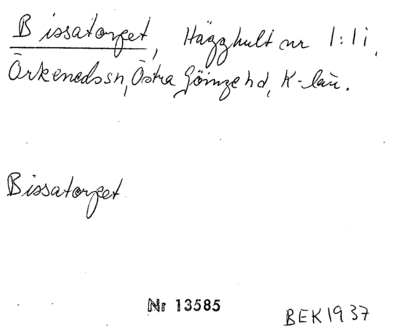 Bissatorpet, Hägghult nr 1:11,
Örkenedssn, Östra Göinge hd, K-län.
Bissatorpet
Nr 13585
BEK 1937